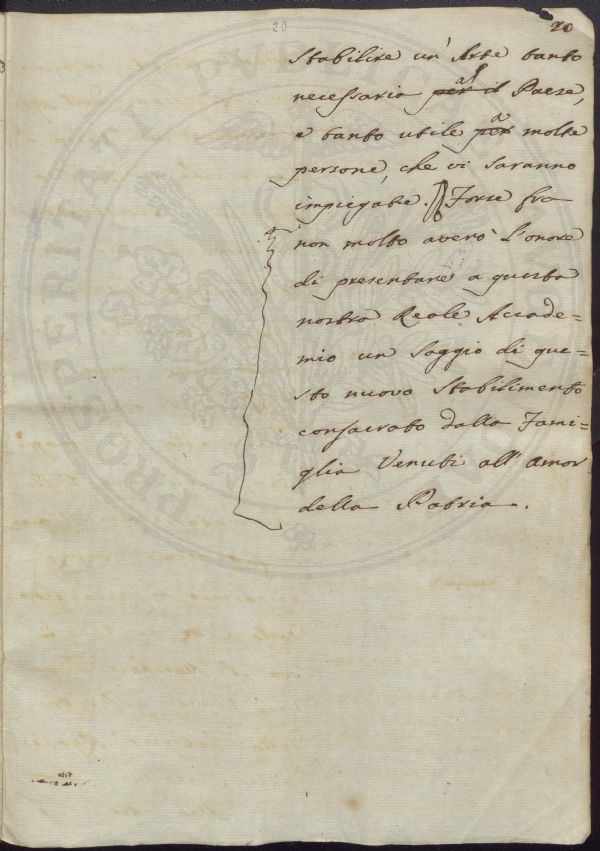 20
20
stabilire un' Arte tanto
necessaria per al il Paese,
e tanto utile per a molte
persone, che vi saranno
impiegate. Forse fra
non molto averò l'onore
di presentare a questa
nostra Reale Accade=
mia un saggio di que=
sto nuovo stabilimento
consacrato dalla Fami=
glia Venuti all' amor
della Patria.
PROSPERITATI PUBLICAE